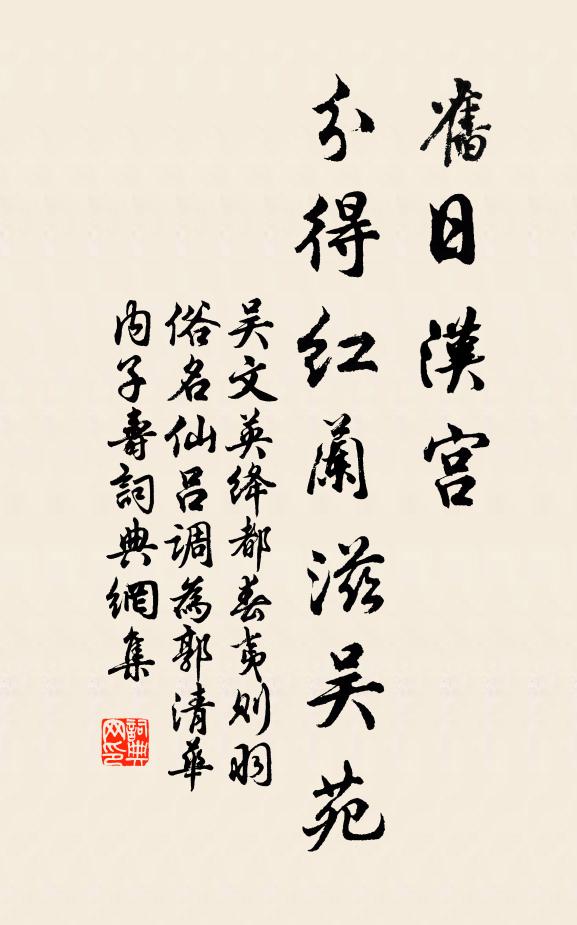 舊日漢宮
分得紅蘭滋吴苑
吴文英绛都春夷则羽
俗名仙吕調為郭清華
内子壽詞典網集
詞典
网印